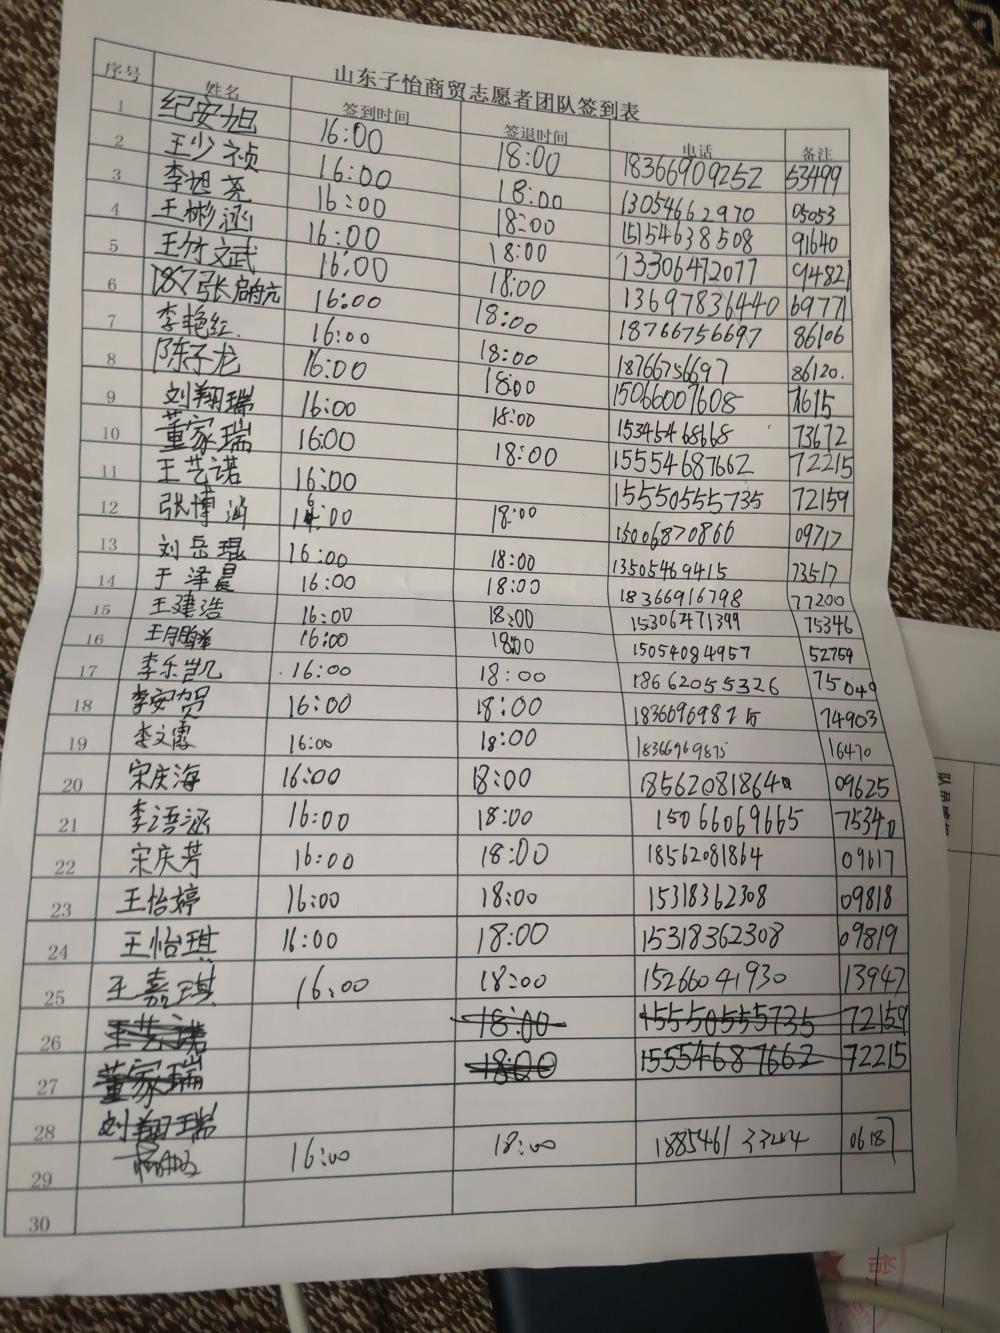 山东子怡商贸志愿者团队签到表
序号 姓名 签到时间 签退时间 电话 备注
1 纪安旭 16:00 18:00 18366909252 53499
2 王少祯 16:00 18:00 13054662970 05053
3 李旭尧 16:00 18:00 15154638508 91640
4 王彬涵 16:00 18:00 13306472077 94821
5 王竹文武 16:00 18:00 13697836440 69771
6 张启航 16:00 18:00 18766756697 86106
7 李艳红 16:00 18:00 18766756697 86120
8 陈子龙 16:00 18:00 15066007608 7615
9 刘翔瑞 16:00 18:00 15345468668 73672
10 董家瑞 16:00 18:00 15554687662 72215
11 王艺诺 16:00 15550555735 72159
12 张博涵 16:00 18:00 15006870866 09717
13 刘岳琨 16:00 18:00 13505469415 73517
14 于泽晨 16:00 18:00 18366916798 77200
15 王建浩 16:00 18:00 15306471399 75346
16 16:00 18:00 15054084957 52759
17 李乐凯 16:00 18:00 18662055326 75040
18 李安贺 16:00 18:00 18366969875 74903
19 李文露 16:00 18:00 18366969875 16470
20 宋庆海 16:00 18:00 18562081864 09625
21 李语涵 16:00 18:00 15066069665 75340
22 宋庆芳 16:00 18:00 18562081864 09617
23 王怡婷 16:00 18:00 15318362308 09818
24 王怡琪 16:00 18:00 15318362308 09819
25 王嘉琪 16:00 18:00 15266041930 13947
26 王艺诺 18:00 15550555735 72159
27 董家瑞 18:00 15554687662 72215
28 刘翔瑞
29 16:00 18:00 0618
30